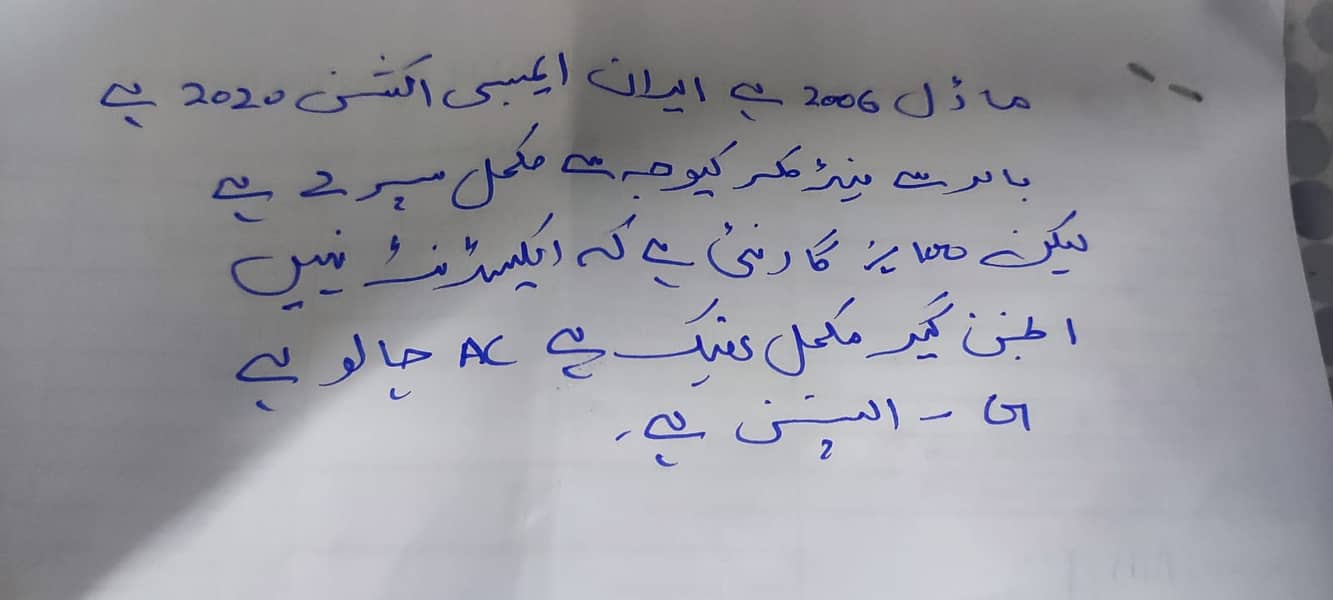 ماڈل 2006 ہے ایران ایمبسی اکشن 2020 ہے
باہر سے مینڑ مکر کیوجہ سے مکمل سپرے ہے
لیکن 100% گارنٹی ہے کہ ایکسیڈنٹ نہیں
انجن گیر مکمل ٹھیک ہے AC چالو ہے
G - اپشن ہے۔